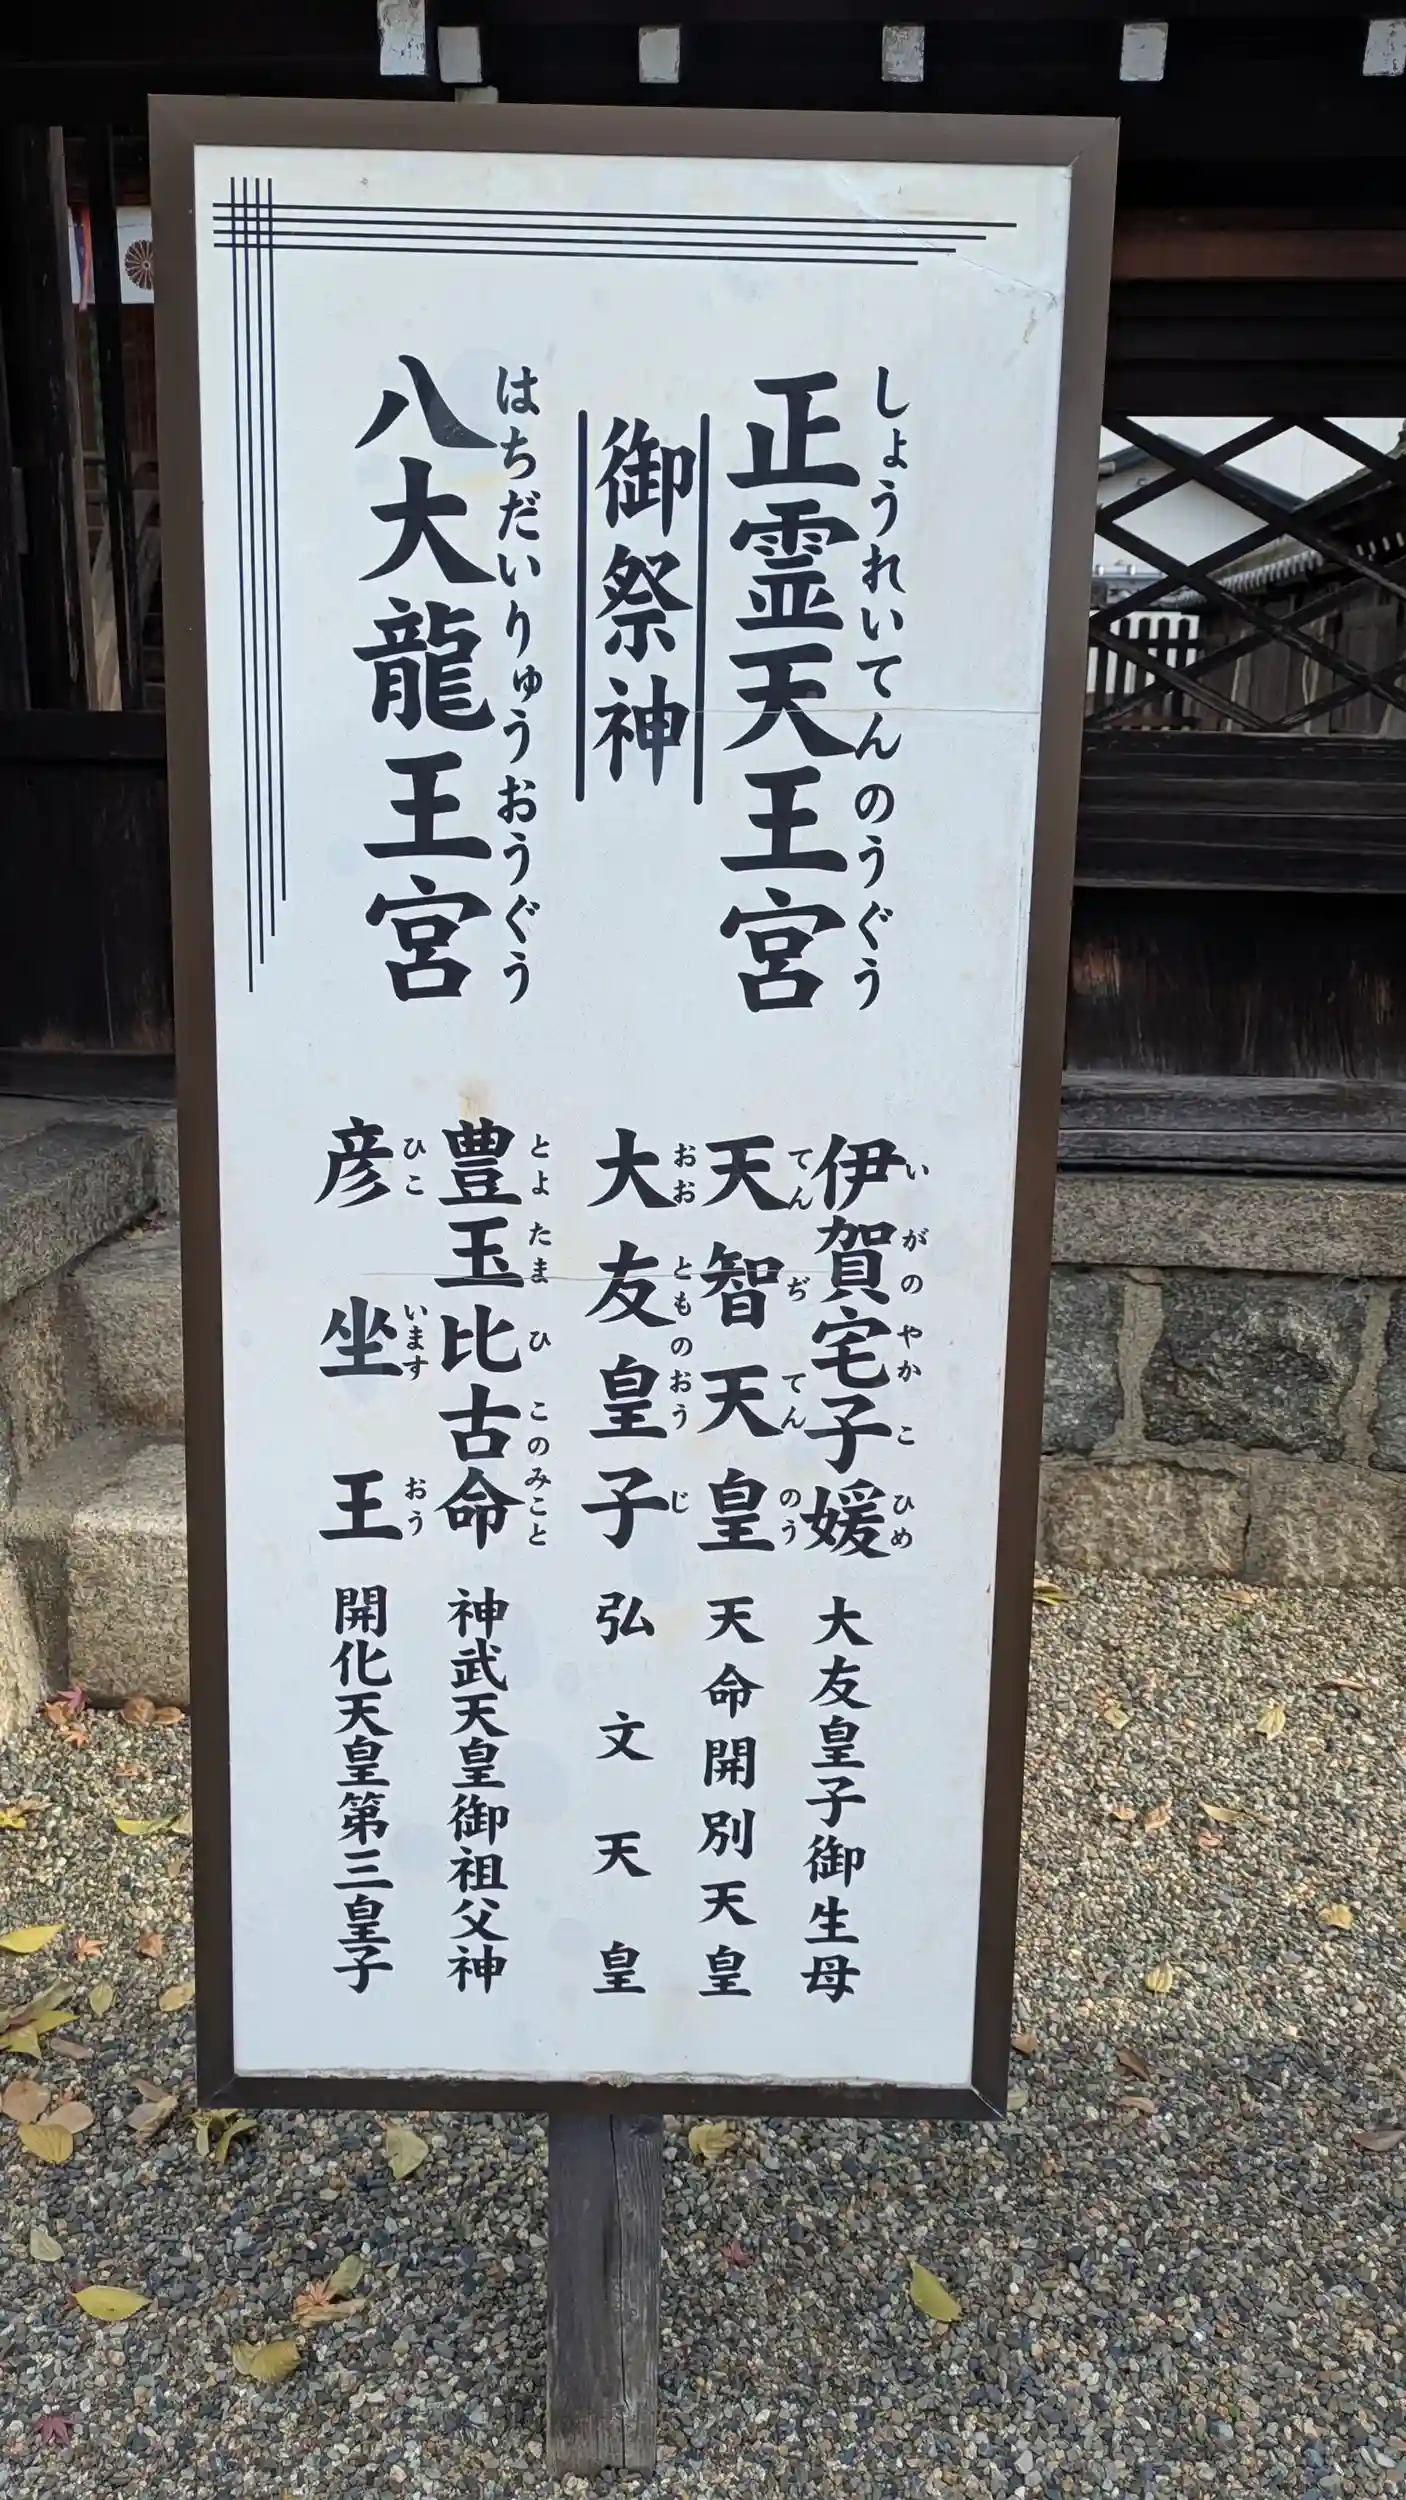 しょうれいてんのうぐう
正霊天王宮
御祭神
はちだいりゅうおうぐう
八大龍王宮
いがのやかこひめ
伊賀宅子媛 大友皇子御生母
てんぢてんのう
天智天皇 天命開別天皇
おおとものおうじ
大友皇子 弘文天皇
とよたまひこのみこと
豊玉比古命 神武天皇御祖父神
ひこいますおう
彦坐王 開化天皇第三皇子